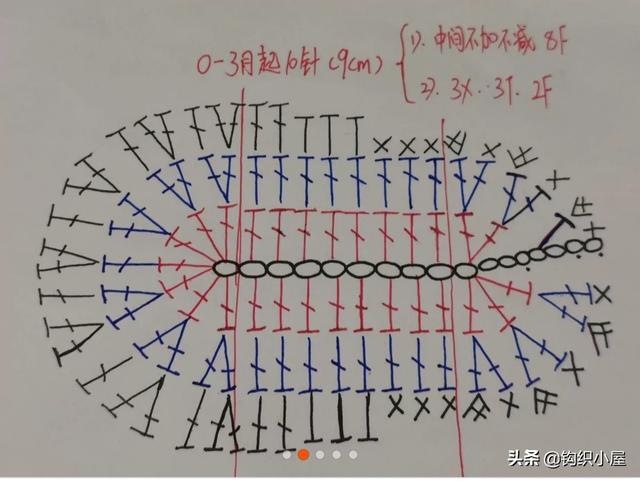 0-3月起10针(9cm)
1). 中间不加不减 8F
2). 3X. 3T. 2F
头条 @钩织小屋